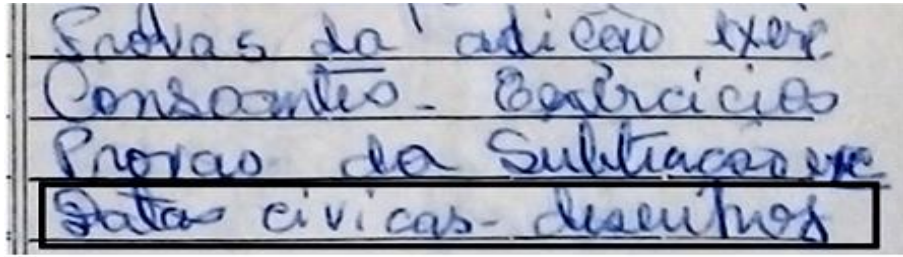 Provas da adição exerc.
Consoantes - Exercícios
Provas da Subtração exc
Datas civicas - desenhos